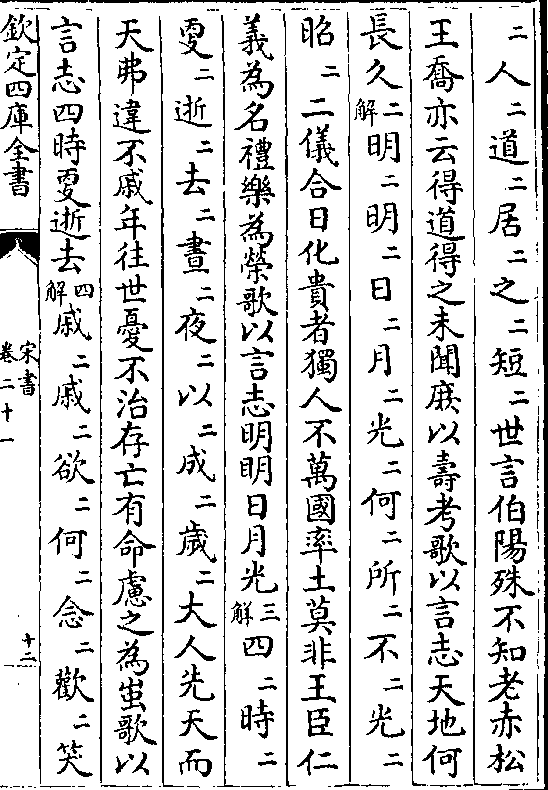 二人二道二居二之二短二世言伯陽殊不知老赤松
王喬亦云得道得之未聞庶以壽考歌以言志天地何
長久二解明二明二日二月二光二何二所二不二光二
昭二二儀合日化貴者獨人不萬國率土莫非王臣仁
義為名禮樂為榮歌以言志明明日月光三解四二時二
更二逝二去二晝二夜二以二成二歲二大人先天而
天弗違不戚年往世憂不治存亡有命慮之為蚩歌以
言志四時更逝去四解戚二戚二欲二何二念二歡二笑
欽定四庫全書
宋書
卷二十一
十二